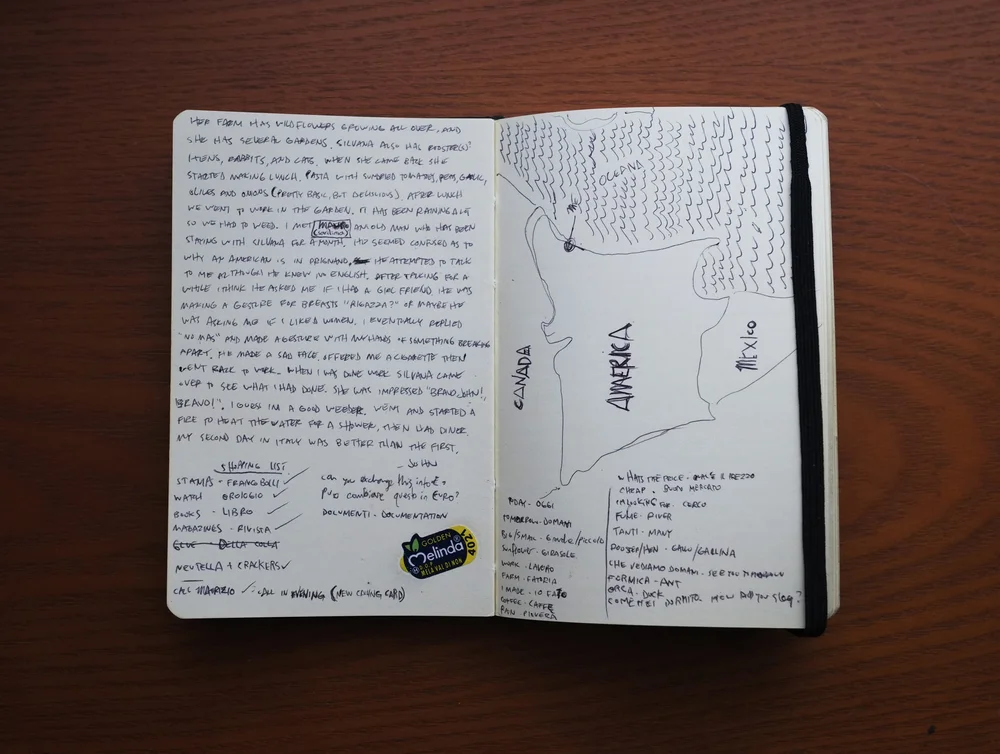 HER FARM HAS WILDFLOWERS GROWING ALL OVER, AND
SHE HAS SEVERAL GARDENS. SILVANA ALSO HAS ROOSTERS?
HENS, RABBITS, AND CATS. WHEN SHE CAME BACK SHE
STARTED MAKING LUNCH. PASTA WITH SUNDRIED TOMATOES, PEAS, GARLIC,
OLIVES AND ONIONS (PRETTY BASIC, BUT DELICIOUS). AFTER LUNCH
WE WENT TO WORK IN THE GARDEN. IT HAS BEEN RAINING A LOT
SO WE HAD TO WEED. I MET AN OLD MAN WHO HAS BEEN
STAYING WITH SILVANA FOR A MONTH. HE SEEMED CONFUSED AS TO
WHY AN AMERICAN IS IN ARIGNANO. HE ATTEMPTED TO TALK
TO ME ALTHOUGH HE KNEW NO ENGLISH. AFTER TALKING FOR A
WHILE I THINK HE ASKED ME IF I HAD A GIRL FRIEND. HE WAS
MAKING A GESTURE FOR BREASTS "RIGAZZA?" OR MAYBE HE
WAS ASKING ME IF I LIKED WOMEN. I EVENTUALLY REPLIED
"NO MAS" AND MADE A GESTURE WITH MY HANDS OF SOMETHING BREAKING
APART. HE MADE A SAD FACE, OFFERED ME A CIGARETTE THEN
WENT BACK TO WORK. WHEN I WAS DONE WORK SILVANA CAME
OVER TO SEE WHAT I HAD DONE. SHE WAS IMPRESSED "BRAVO JOHN!,
BRAVO!". I GUESS IM A GOOD WEEDER. WENT AND STARTED A
FIRE TO HEAT THE WATER FOR A SHOWER, THEN HAD DINER.
MY SECOND DAY IN ITALY WAS BETTER THAN THE FIRST.
- JOHN
SHOPPING LIST
STAMPS - FRANGBOLLI
WATCH OROLOGIO
BOOKS - LIBRO
MAGAZINES - RIVISTA
GLUE - DELLA COLLA
NEUTELLA + CRACKERS
CALL MAURIZIO - CALL IN EVENING (NEW CALLING CARD)
can you exchange this into €
Puo cambiare questo in Euro?
DOCUMENTI - DOCUMENTATION
GOLDEN
Melinda
D.O.P.
MELA VAL DI NON
4021
OCEANA
ME
CANADA
AMERICA
MEXICO
TODAY - OGGI
TOMORROW - DOMANI
BIG/SMALL - Grande/Piccolo
SUNFLOWER - GIRASOLE
WORK - LAVORO
FARM - FATORIA
I MADE - IO FATO
COFFEE - CAFFE
WHATS THE PRICE - IL PREZZO
CHEAP - BUON MERCADO
IM LOOKING FOR - CERCO
FUME - RIVER
TANTI - MANY
ROOSTER/HEN - GALLO/GALLINA
CHE VEDIAMO DOMANI - SEE YOU TOMORROW
FORMICA - ANT
ORCA - DUCK
COME HEI DORMITO HOW DID YOU SLEEP?